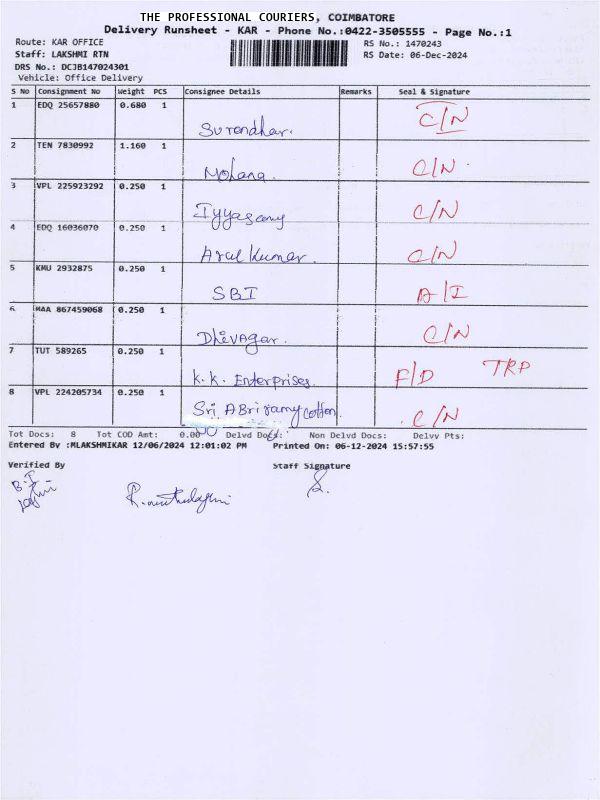 THE PROFESSIONAL COURIERS, COIMBATORE
Delivery Runsheet - KAR - Phone No.:0422-3505555 - Page No.:1
Route: KAR OFFICE RS No.: 1470243
Staff: LAKSHMI RTN RS Date: 06-Dec-2024
DRS No.: DCJB147024301
Vehicle: Office Delivery
S No Consignment No Weight PCS Consignee Details Remarks Seal & Signature
1 EDQ 25657880 0.680 1 Surendhar. C/N
2 TEN 7830992 1.160 1 Mohana. C/N
3 VPL 225923292 0.250 1 Iyyasamy C/N
4 EDQ 16036070 0.250 1 Arul Kumar. C/N
5 KMU 2932875 0.250 1 SBI A/I
6 MAA 867459068 0.250 1 Dhevagar. C/N
7 TUT 589265 0.250 1 K.K. Enterprises. F/D TRP
8 VPL 224205734 0.250 1 Sri cotton. C/N
Tot Docs: 8 Tot COD Amt: 0.00 Delvd Docs: Non Delvd Docs: Delvv Pts:
Entered By :MLAKSHMIKAR 12/06/2024 12:01:02 PM Printed On: 06-12-2024 15:57:55
Verified By Staff Signature